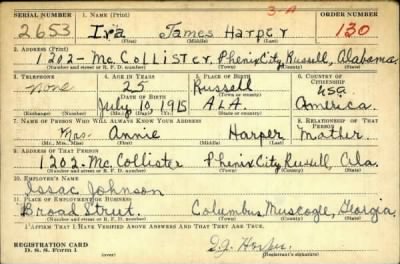 3-A
SERIAL NUMBER 1. NAME (Print) ORDER NUMBER
2653 Ira James Harper 130
(First) (Middle) (Last)
2. ADDRESS (Print)
1202- Mc Collister. Phenix City, Russell, Alabama.
(Number and street or R. F. D. number) (Town) (County) (State)
3. TELEPHONE 4. AGE IN YEARS 5. PLACE OF BIRTH 6. COUNTRY OF CITIZENSHIP
none 25 Russell USA.
DATE OF BIRTH (Town or county)
July 10, 1915 ALA. America.
(Exchange) (Number) (Mo.) (Day) (Yr.) (State or country)
7. NAME OF PERSON WHO WILL ALWAYS KNOW YOUR ADDRESS 8. RELATIONSHIP OF THAT PERSON
Mrs. Annie Harper Mother.
(Mr., Mrs., Miss) (First) (Middle) (Last)
9. ADDRESS OF THAT PERSON
1202. Mc. Collister Phenix City, Russell, Ala.
(Number and street or R. F. D. number) (Town) (County) (State)
10. EMPLOYER'S NAME
Issac Johnson
11. PLACE OF EMPLOYMENT OR BUSINESS
Broad Strut. Columbus, Muscogle, Georgia.
(Number and street or R. F. D. number) (Town) (County) (State)
I AFFIRM THAT I HAVE VERIFIED ABOVE ANSWERS AND THAT THEY ARE TRUE.
REGISTRATION CARD
D. S. S. Form 1 (Registrant's signature)